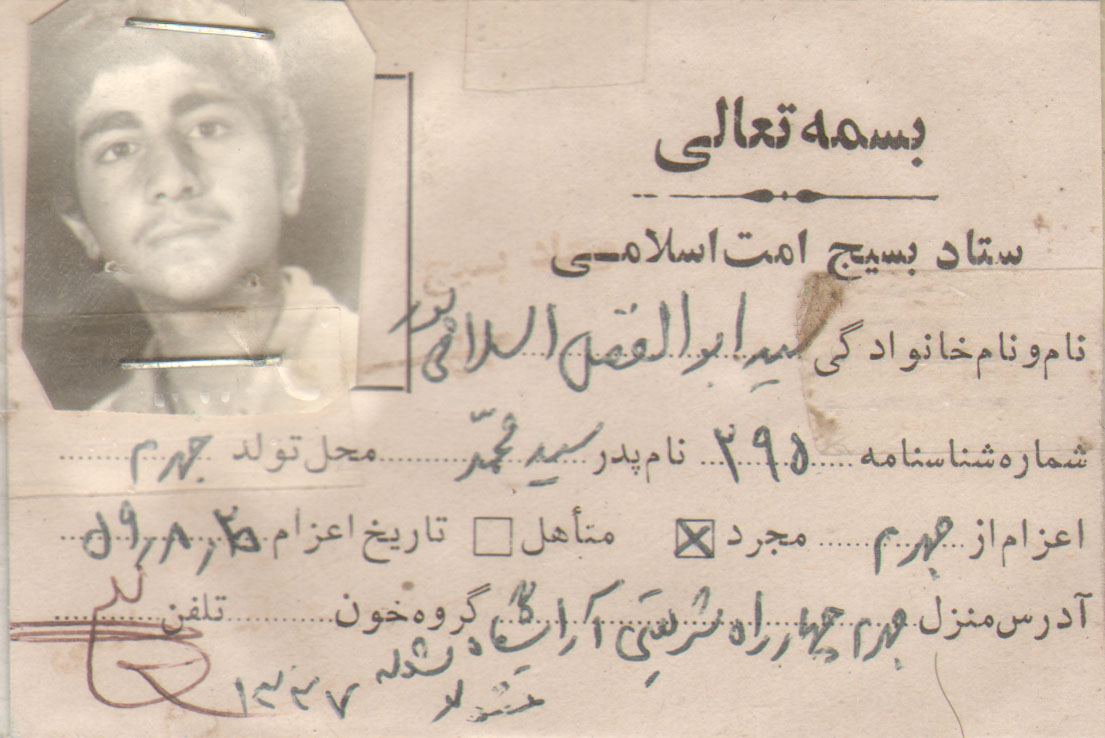 بسمه تعالی
ستاد بسیج امت اسلامی
نام و نام خانوادگی سید ابوالفضل السلاقی پور
شماره شناسنامه ۳۹۵ نام پدر سید محمّد محل تولد جهرم
اعزام از جهرم مجرد متأهل تاریخ اعزام ۵۹٫۸٫
آدرس منزل جهرم چهارراه شریعتی آرایشگاه گروه خون تلفن